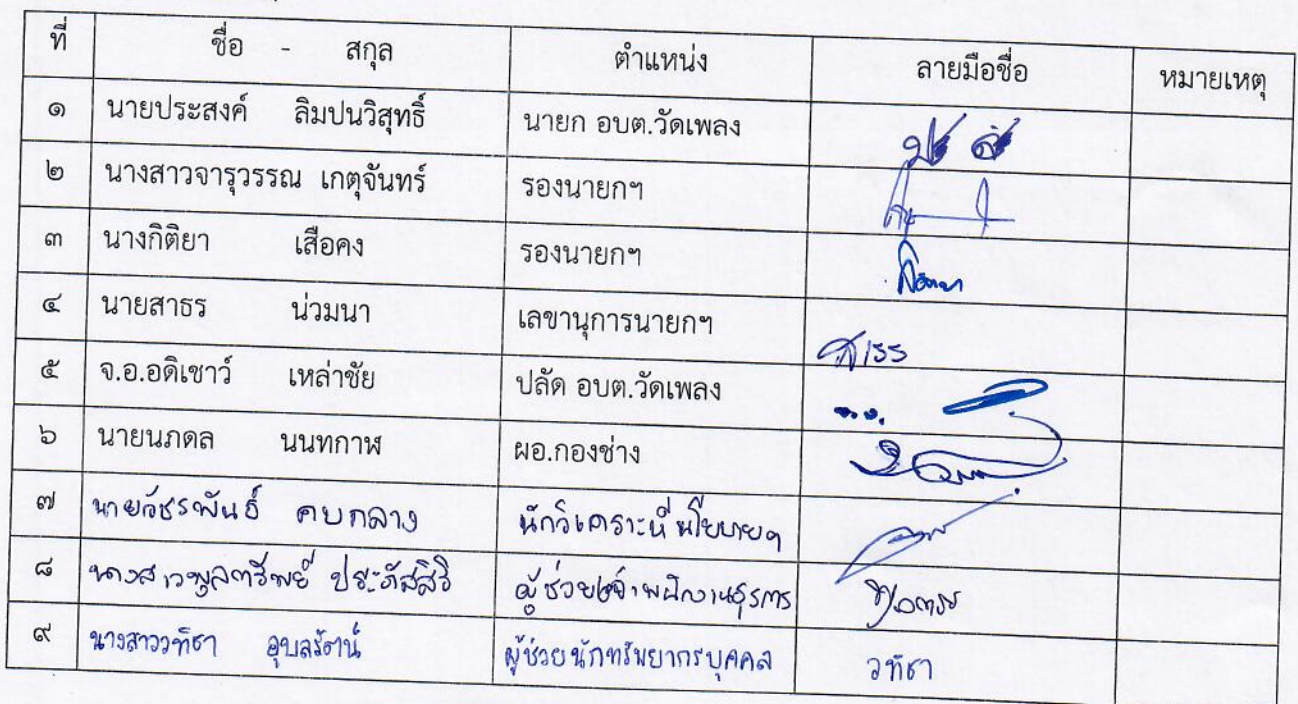 ที่ ชื่อ - สกุล ตำแหน่ง ลายมือชื่อ หมายเหตุ
๑ นายประสงค์ ลิมปนวิสุทธิ์ นายก อบต.วัดเพลง
๒ นางสาวจารุวรรณ เกตุจันทร์ รองนายกฯ
๓ นางกิติยา เสือคง รองนายกฯ กิติยา
๔ นายสาธร น่วมนา เลขานุการนายกฯ
๕ จ.อ.อดิเชาว์ เหล่าชัย ปลัด อบต.วัดเพลง
๖ นายนภดล นนทกาฬ ผอ.กองช่าง
๗ นายวัชรพันธ์ คบกลาง นักวิเคราะห์นโยบายฯ
๘ นางสาวพูลทรัพย์ ประภัสสิริ ผู้ช่วยเจ้าพนักงานธุรการ
๙ นางสาววทิตา อุบลรัตน์ ผู้ช่วยนักทรัพยากรบุคคล วทิตา